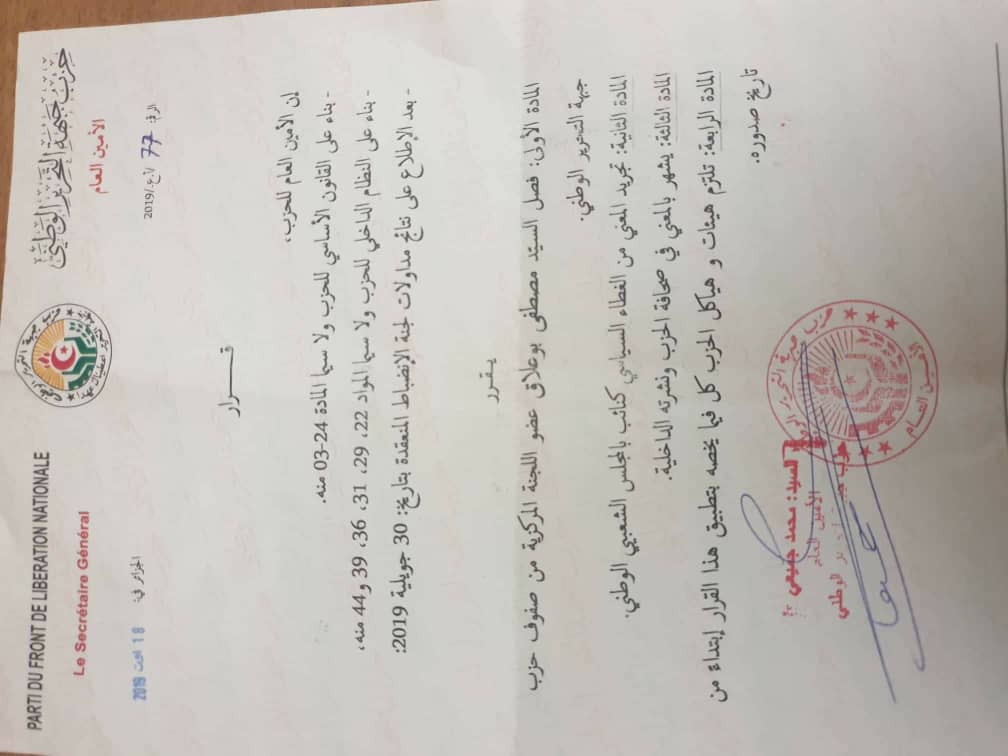 PARTI DU FRONT DE LIBERATION NATIONALE
حزب جبهة التحرير الوطني
Le Secrétaire Général
الأمين العام
الجزائر في: 18 اوت 2019
الرقم: 77 /أ.ع./2019
قـــــرار
إن الأمين العام للحزب،
- بناء على القانون الأساسي للحزب ولا سيما المادة 24-03 منه.
- بناء على النظام الداخلي للحزب ولا سيما المواد 22، 29، 31، 36، 39 و44 منه،
- بعد الإطلاع على نتائج مداولات لجنة الإنضباط المنعقدة بتاريخ: 30 جويلية 2019:
يـقـرر
المادة الأولى: فصل السيّد مصطفى بوعلاق عضو اللجنة المركزية من صفوف حزب
جبهة التحرير الوطني.
المادة الثانية: تجريد المعني من الغطاء السياسي كنائب بالمجلس الشعبي الوطني.
المادة الثالثة: يشهر بالمعني في صحافة الحزب ونشرته الداخلية.
المادة الرابعة: تلتزم هيئات و هياكل الحزب كل فيما يخصه بتطبيق هذا القرار إبتداءً من
تاريخ صدوره.
السيد: محمد جميعي
الأمين العام